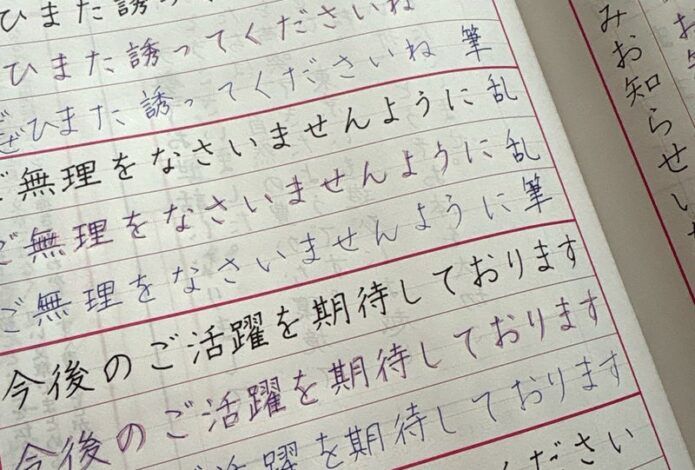 ひまた
ひまた誘ってくださいね
ぜひまた誘ってくださいね 筆
ご無理をなさいませんように 乱
ご無理をなさいませんように 乱
ご無理をなさいませんように 筆
今後のご活躍を期待しております
今後のご活躍を期待しております
活躍を期待しております
ください
みお知らせい